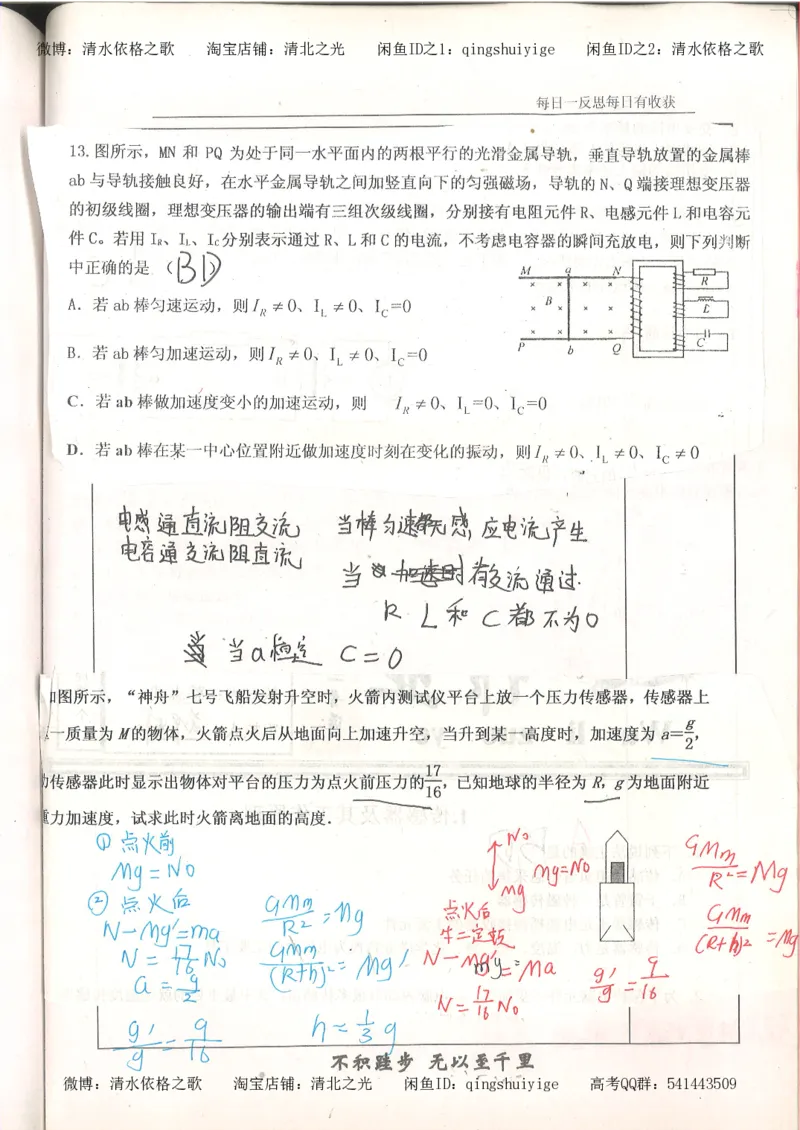 微博：清水依格之歌 淘宝店铺：清北之光 闲鱼ID之1：qingshuiyige 闲鱼ID之2：清水依格之歌
每日一反思每日有收获
13.图所示，MN 和 PQ 为处于同一水平面内的两根平行的光滑金属导轨，垂直导轨放置的金属棒
ab与导轨接触良好，在水平金属导轨之间加竖直向下的匀强磁场，导轨的N、Q端接理想变压器
的初级线圈，理想变压器的输出端有三组次级线圈，分别接有电阻元件R、电感元件L和电容元
件C。若用I_R、I_L、I_C分别表示通过R、L和C的电流，不考虑电容器的瞬间充放电，则下列判断
中正确的是（BD）
M a N
R
B
L
C
P b Q
A．若ab棒匀速运动，则I_R≠0、I_L≠0、I_C=0
B．若ab棒匀加速运动，则I_R≠0、I_L≠0、I_C=0
C．若ab棒做加速度变小的加速运动，则 I_R≠0、I_L=0、I_C=0
D．若ab棒在某一中心位置附近做加速度时刻在变化的振动，则I_R≠0、I_L≠0、I_C≠0
电感通直流阻交流 当棒匀速都无感应电流产生
电容通交流阻直流
当 加速时有交流通过
R L和C都不为0
当a恒定 C=0
如图所示，“神舟”七号飞船发射升空时，火箭内测试仪平台上放一个压力传感器，传感器上
一质量为M的物体，火箭点火后从地面向上加速升空，当升到某一高度时，加速度为a=g/2，
传感器此时显示出物体对平台的压力为点火前压力的17/16，已知地球的半径为R，g为地面附近
重力加速度，试求此时火箭离地面的高度．
①点火前
Mg=N₀
②点火后
N-Mg'=ma
N=17/16 N₀
a=g/2
g'/g=9/16
GMm/R²=Mg
GMm/(R+h)²=Mg'
h=1/3 g
N₀
mg
mg=N₀
点火后
牛二定顿
N-mg'=ma
N=17/16 N₀
g'/g=9/16
GMm/R²=Mg
GMm/(R+h)²=Mg
不积跬步 无以至千里
微博：清水依格之歌 淘宝店铺：清北之光 闲鱼ID：qingshuiyige 高考QQ群：541443509